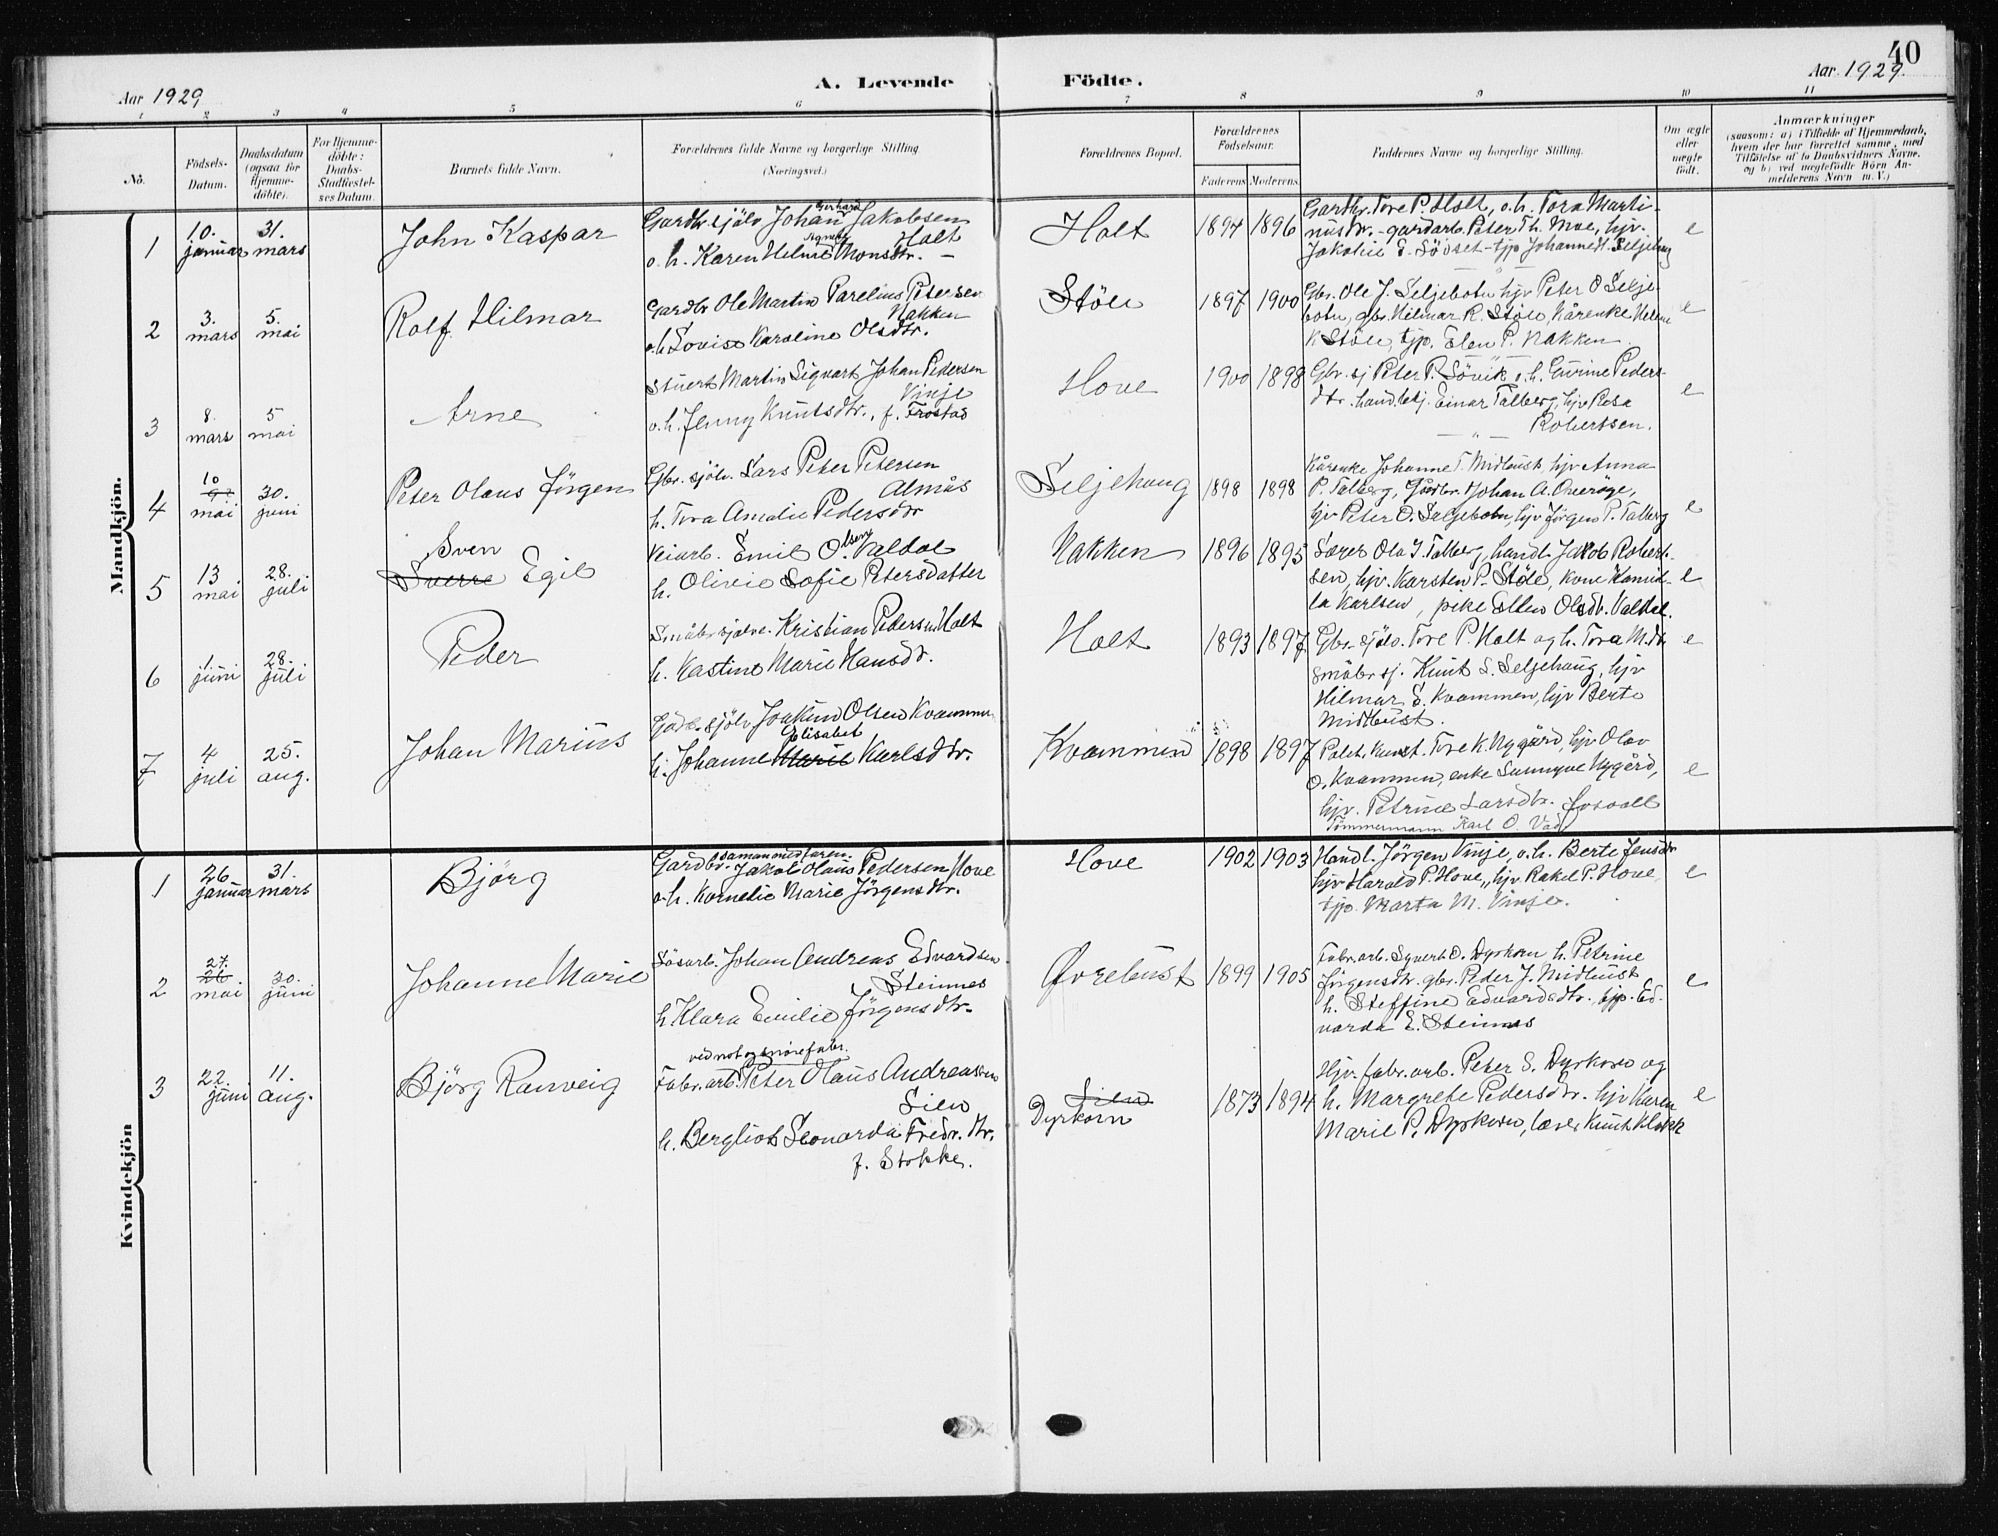 40
Aar 1929
A. Levende Födte.
Aar 1929.
1 2 3 4 5 6 7 8 9 10 11
No.
Födsels-
Datum.
Daabsdatum
(ogsaa för
Hjemme-
döbte).
For Hjemme-
döbte:
Daabs-
Stadfæstel-
ses Datum.
Barnets fulde Navn.
Forældrenes fulde Navne og borgerlige Stilling
(Næringsvei.)
Forældrenes Bopæl.
Forældrenes
Födselsaar.
Faderens Moderens.
Faddernes Navne og borgerlige Stilling.
Om ægte
eller
uægte
födt.
Anmærkninger
(saasom: a) i Tilfælde af Hjemmedaab,
hvem der har forrettet samme, med
Tilföielse af to Daabsvidners Navne,
og b) ved uægtefödte Börn An-
melderens Navn m. V.)
Mandkjön.
1
10. januar
31. mars
John Kaspar
Gardbr. sjölv Johan Gerhard Jakobsen
Holt
o. h. Karen Helme Agnete Monsdtr. –
Holt
1897 1896
Gardbr. Tore P. Holt, o. h. Tora Marti-
nusdtr. - gardarb. Peter Th. Moe, hjv.
Jakobie E. Sövset - tjp Johanne Seljehaug
e
2
3. mars
5. mai
Rolf Hilmar
Gardbr Ole Martin Parelius Petersen
Nakken
o. h. Lovise Karoline Olsdtr.
Stöle
1897 1900
Gbr. Ole J. Seljebotn hjv Peter O Selje-
botn, gbr. Hilmar R. Stöle, Kårenke Helene
K Stöle, tjp. Elen P. Nakken.
e
3
8. mars
5 mai
Arne
Stuert Martin Sigvart Johan Pedersen
Vinje
o. h. Jenny Knutsdtr., f. Frostad
Hove
1900 1898
Gbr. sj Peter P. Sövik o. h. Gurine Peders-
dtr. handlbtj. Einar Talberg, hjv Rosa
Robertsen.
e
4
10 mai
30. juni
Peter Olaus Jörgen
Gbr. sjölv. Lars Peter Petersen
Almås
h. Tora Amalie Pedersdtr
Seljehaug
1898 1898
Kårenke Johanne T. Midtbust, hjv Anna
P. Talberg, Gardbr. Johan A. Overöye,
hjv Peter O. Seljebotn, hjv Jörgen P. Talberg
e
5
13 mai
28. juli
Sven
Sverre Egil
Veiarb. Emil O. Valdal
h. Olivie Sofie Petersdatter
Nakken
1896 1895
Lærer Ola J. Talberg, handl. Jakob Robert-
sen, hjv. Karsten P. Stöle, kone Kamil-
la Karlsen, pike Ellen Olsdtr. Valdal.
e
6
1. juni
28. juli
Peder
Småbr sjölve. Kristian Pedersen Holt
h. Kastine Marie Hansdtr.
Holt
1893 1897
Gbr. sjölv. Tore P. Holt og h. Tora M.dtr
småbr sj. Knut S. Seljehaug, hjv
Hilmar E. Kvammen, hjv Berte
Midtbust.
e
7
4 juli
25. aug.
Johan Marius
Gardbr. sjölv Joakim Olsen Kvammen
Elisabet
h. Johanne Marie Karlsdtr.
Kvammen
1898 1897
Tore K. Nygård, hjv Olav
O. Kvammen, enke Sunnyve Nygård,
hjv. Petrine Larsdtr.
Tömmermann Karl O. Vad
e
Kvindekjön
1
26. januar
31. mars
Björg
saman med faren.
Gardbr. Jakob Olaus Pedersen Hove
o. h. Kornelie Marie Jörgensdtr.
Hove
1902 1903
Handl. Jörgen Vinje, o. h. Berte Jensdtr
hjv Harald P. Hove, hjv Rakel P. Hove,
tjp. Marta M. Vinje.
e
2
27. 26 mai
30. juni
Johanne Marie
Johan Andreas Edvardsen
Steinnes
h Klara Emilie Jörgensdtr.
Øvrebust
1899 1905
Fabr. arb. Syvert O. Dyrkorn h. Petrine
Jörgensdtr. gbr. Peder J. Midtbust
h. Steffine Edvardsdtr., tjp. Ed-
varda E. Steinnes
e
3
22. juni
11. aug.
Björg Ranveig
ved not og snörefabr.
Fabr. arb. Peter Olaus Andreassen
Lien
h. Bergliot Leonarda Fredr. dtr.
f. Stokke.
Lien
Dyrkorn
1873 1894
Hjv. fabr. arb. Peter S. Dyrkorn og
h. Margrete Pedersdtr. hjv Karen
Marie P. Dyrkorn, lærer Knut Klokk
e